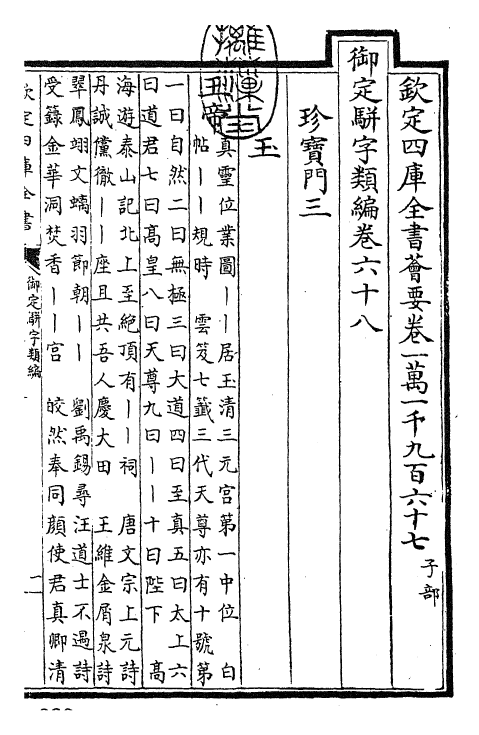 欽定四庫全書薈要卷一萬一千九百六十七 子部
御定駢字類編卷六十八
珍寶門三
玉
玉帝
真靈位業圖丨丨居玉清三元宮第一中位 白
帖丨丨規時 雲笈七籤三代天尊亦有十號第
一曰自然二曰無極三曰大道四曰至真五曰太上六
曰道君七曰高皇八曰天尊九曰丨丨十曰陛下 高
海遊泰山記北上至絕頂有丨丨祠 唐文宗上元詩
丹誠儻徹丨丨座且共吾人慶大田 王維金屑泉詩
翠鳳翊文螭羽節朝丨丨 劉禹錫尋汪道士不遇詩
受籙金華洞焚香丨丨宮 皎然奉同顏使君真卿清
欽定四庫全書
御定駢字類編